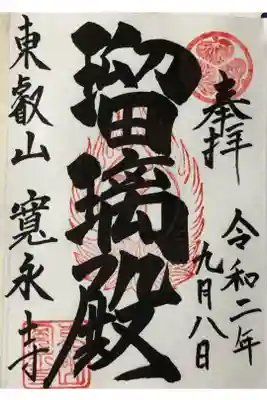 奉拝
令和二年
九月八日
瑠璃殿
東叡山 寛永寺